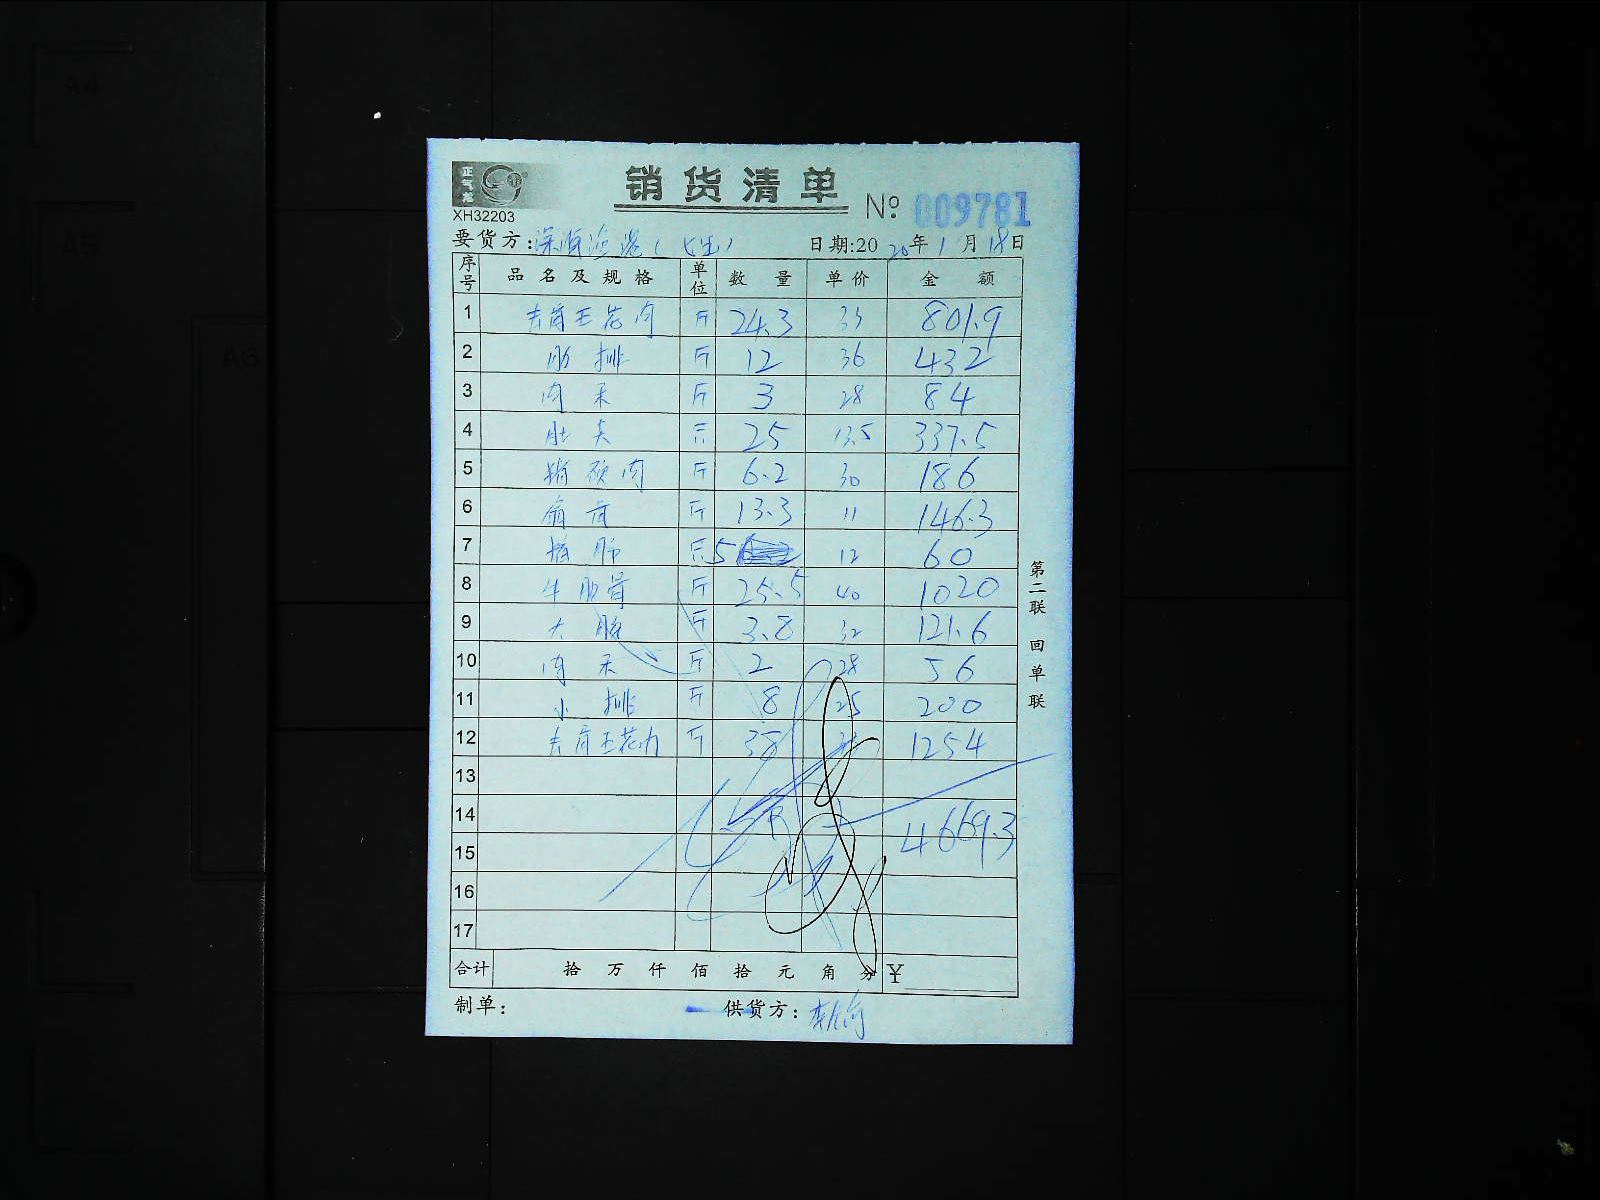 正气龙
销货清单
XH32203
№ 009781
要货方: 日期:2020年1月18日
序号 品名及规格 单位 数量 单价 金额
1 去骨五花肉 斤 24.3 33 801.9
2 肋排 斤 12 36 432
3 肉末 斤 3 28 84
4 肚尖 25 13.5 337.5
5 猪颈肉 斤 6.2 30 186
6 斤 13.3 11 146.3
7 5 12 60
8 牛肋骨 斤 25.5 40 1020
9 大肠 斤 3.8 32 121.6
10 肉末 斤 2 28 56
11 小排 斤 8 25 200
12 去骨五花肉 斤 38 33 1254
13
14 4669.3
15
16
17
合计 拾万仟佰拾元角分 ¥
制单: 供货方:
第二联 回单联